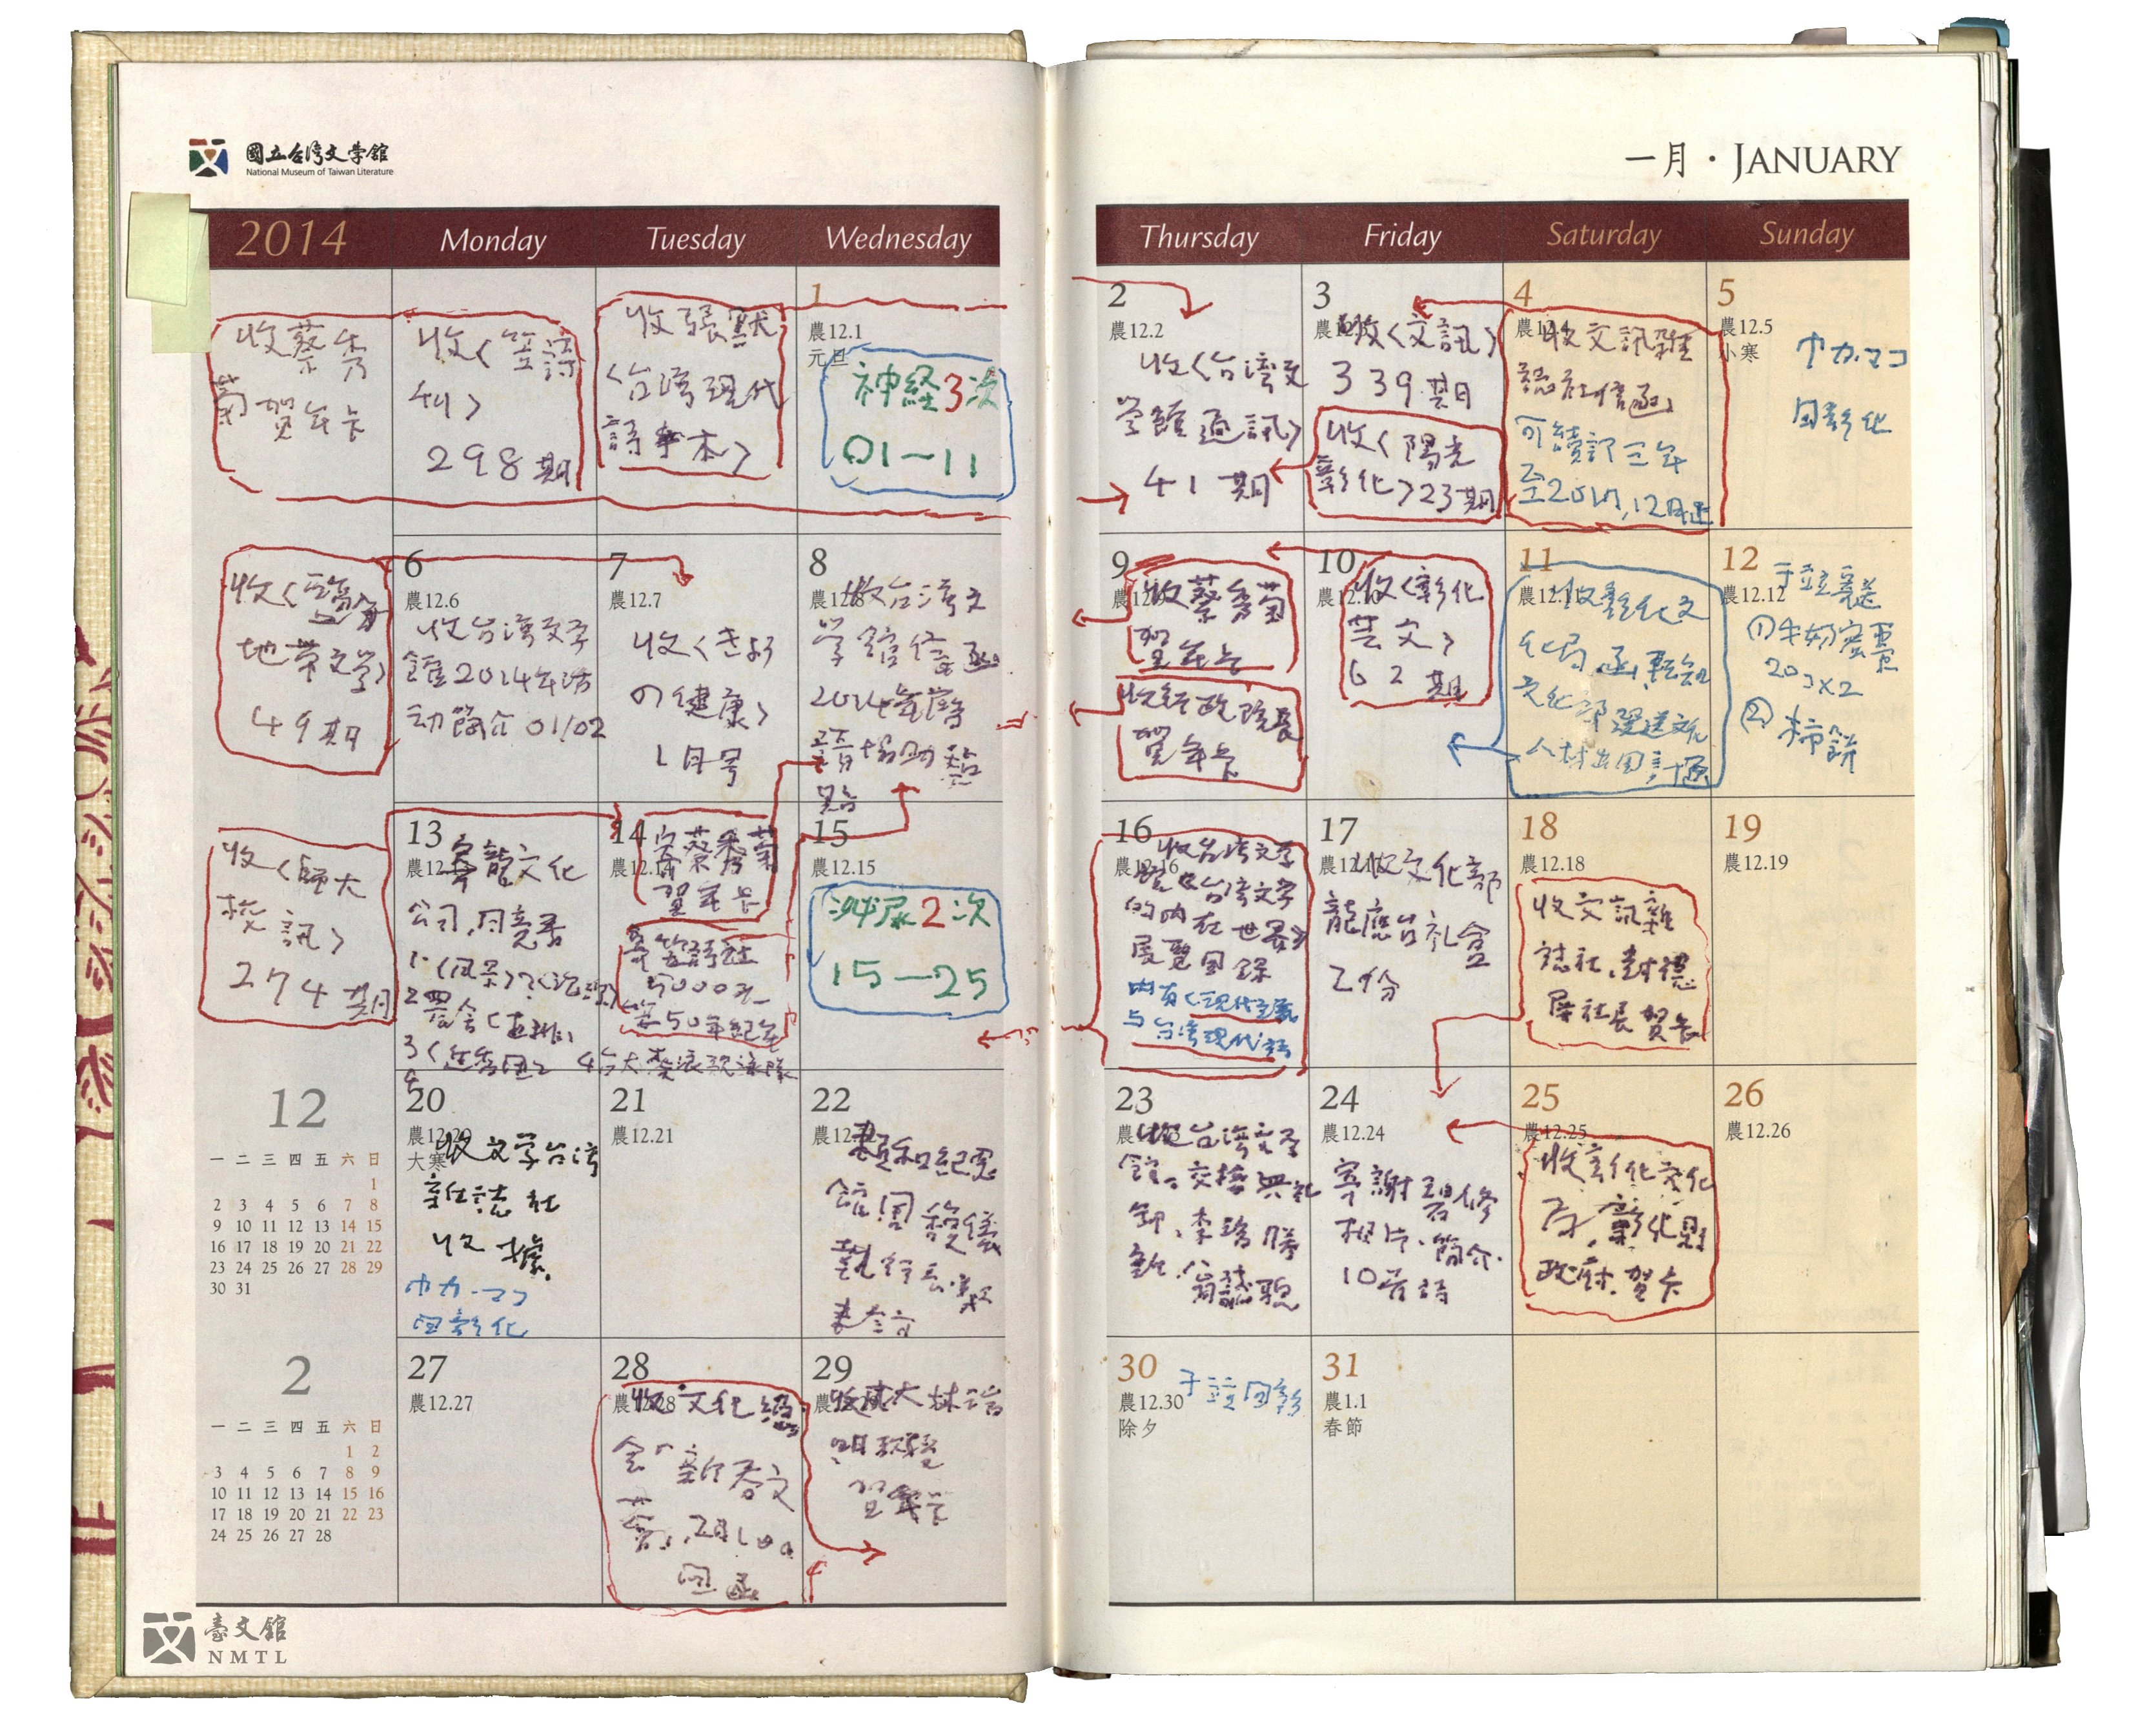 國立台湾文学館
National Museum of Taiwan Literature
一月・JANUARY
2014
Monday
Tuesday
Wednesday
Thursday
Friday
Saturday
Sunday
收蔡秀
菊賀年卡
收〈笠詩
刊〉
298期
收張默
〈台湾現代
詩 本〉
1
農12.1
元旦
神経3次
01—11
2
農12.2
收〈台湾文
学館通訊〉
41期
3
收〈文訊〉
339期
收〈陽光
彰化〉23期
4
收文訊雜
誌社信函
可續訂三年
至2017,12月止
5
農12.5
小寒
カ.マコ
回彰化
收〈鹽分
地带文学〉
49期
6
農12.6
收台湾文学
館2014年活
动簡介01/02
7
農12.7
收〈きょう
の健康〉
1月号
8
收台湾文
学館信函
2014年曆
請協助
貼
9
收蔡秀菊
賀年卡
收行政院長
賀年卡
10
收〈彰化
芸文〉
62期
11
收彰化文
化局函,轉知
文化部選送文化
人材出国計画
12
農12.12
于立寄送
①牛奶蜜棗
20コ×2
②柿餅
收〈師大
校訊〉
274期
13
寄龍文化
公司,同意書
1.〈風景〉
2
3
14
寄蔡秀菊
賀年卡
寄笠詩社
5000元
笠50年紀念
4台大
15
農12.15
泌尿2次
15—25
16
收台湾文学
館
台湾文学
的内在世界》
展覽図録
内有〈現代主義
与台湾現代詩
17
收文化部
龍應台礼盒
乙份
18
農12.18
收文訊雜
誌社,封德
屏社長賀卡
19
農12.19
12
一 二 三 四 五 六 日
1
2 3 4 5 6 7 8
9 10 11 12 13 14 15
16 17 18 19 20 21 22
23 24 25 26 27 28 29
30 31
20
農12.20
大寒
收文学台湾
雜誌社
收據
カ.マコ
回彰化
21
農12.21
22
賴和紀念
館周馥儀
執行長
23
收台湾文学
館。交接典礼
李瑞騰
翁誌聰
24
農12.24
寄謝碧修
相片.簡介.
10首詩
25
農12.25
收彰化文化
局,彰化縣
政府.賀卡
26
農12.26
2
一 二 三 四 五 六 日
1 2
3 4 5 6 7 8 9
10 11 12 13 14 15 16
17 18 19 20 21 22 23
24 25 26 27 28
27
農12.27
28
收文化總
會"新春文
回函
29
收成大林瑞
明教授
賀年卡
30
農12.30
除夕
于立回彰
31
農1.1
春節
臺文館
NMTL